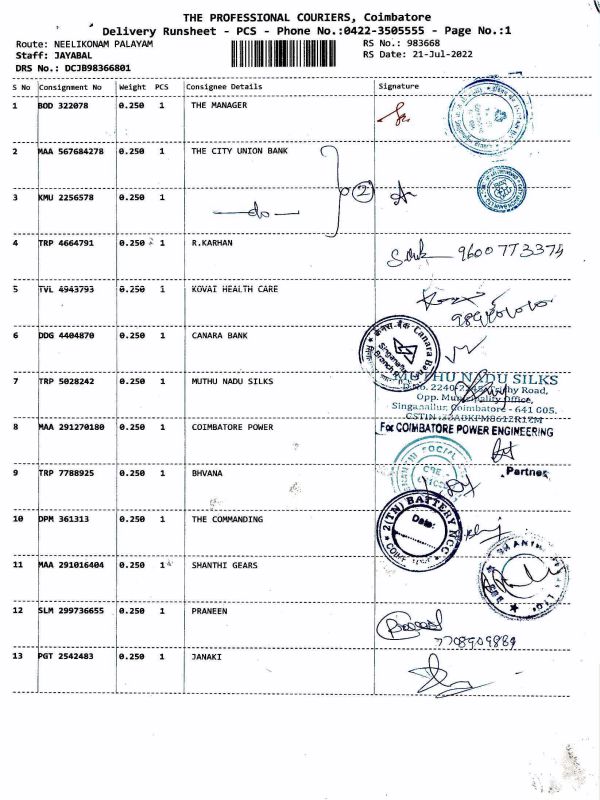 THE PROFESSIONAL COURIERS, Coimbatore
Delivery Runsheet - PCS - Phone No.:0422-3505555 - Page No.:1
Route: NEELIKONAM PALAYAM RS No.: 983668
Staff: JAYABAL RS Date: 21-Jul-2022
DRS No.: DCJB98366801
S No Consignment No Weight PCS Consignee Details Signature
1 BOD 322078 0.250 1 THE MANAGER
2 MAA 567684278 0.250 1 THE CITY UNION BANK
3 KMU 2256578 0.250 1
do 2
4 TRP 4664791 0.250 1 R.KARHAN
9600773374
5 TVL 4943793 0.250 1 KOVAI HEALTH CARE
6 DDG 4404870 0.250 1 CANARA BANK
Canara Bank
7 TRP 5028242 0.250 1 MUTHU NADU SILKS
MUTHU NADU SILKS
Road,
Opp. Municipality Office,
Singanallur, Coimbatore - 641 005.
8 MAA 291270180 0.250 1 COIMBATORE POWER
For COIMBATORE POWER ENGINEERING
Partner
9 TRP 7788925 0.250 1 BHVANA
10 DPM 361313 0.250 1 THE COMMANDING
2(TN) BATTERY NCC
Date:
11 MAA 291016404 0.250 1 SHANTHI GEARS
12 SLM 299736655 0.250 1 PRANEEN
7708909884
13 PGT 2542483 0.250 1 JANAKI